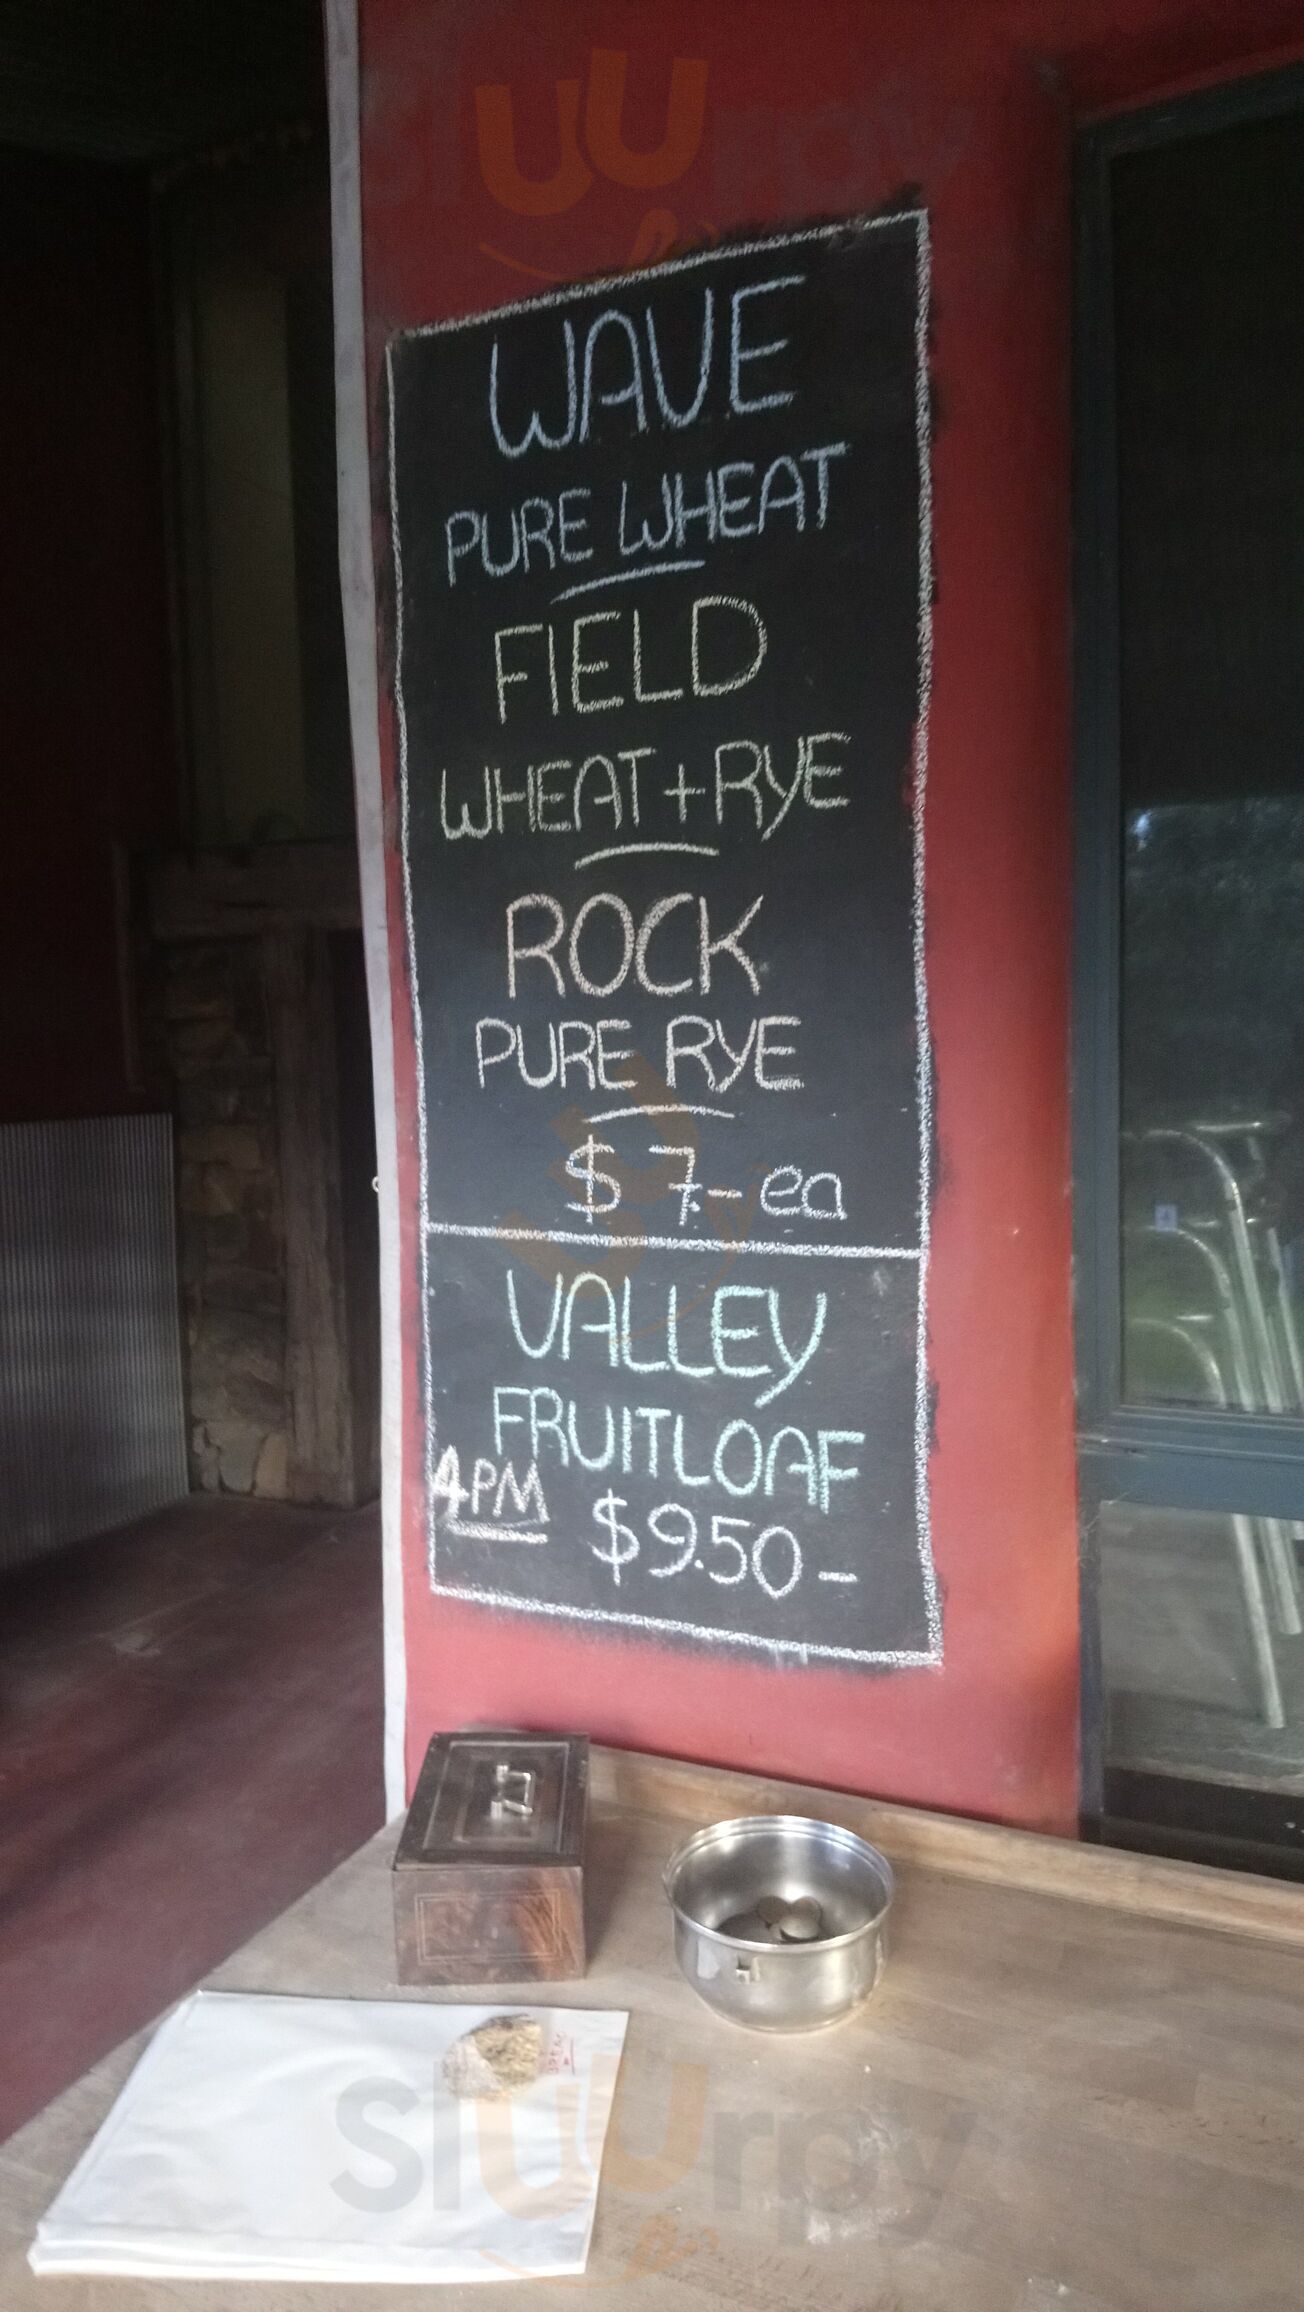 WAVE
PURE WHEAT
FIELD
WHEAT + RYE
ROCK
PURE RYE
$7.- ea
VALLEY
FRUITLOAF
4PM
$9.50-
sluurpy